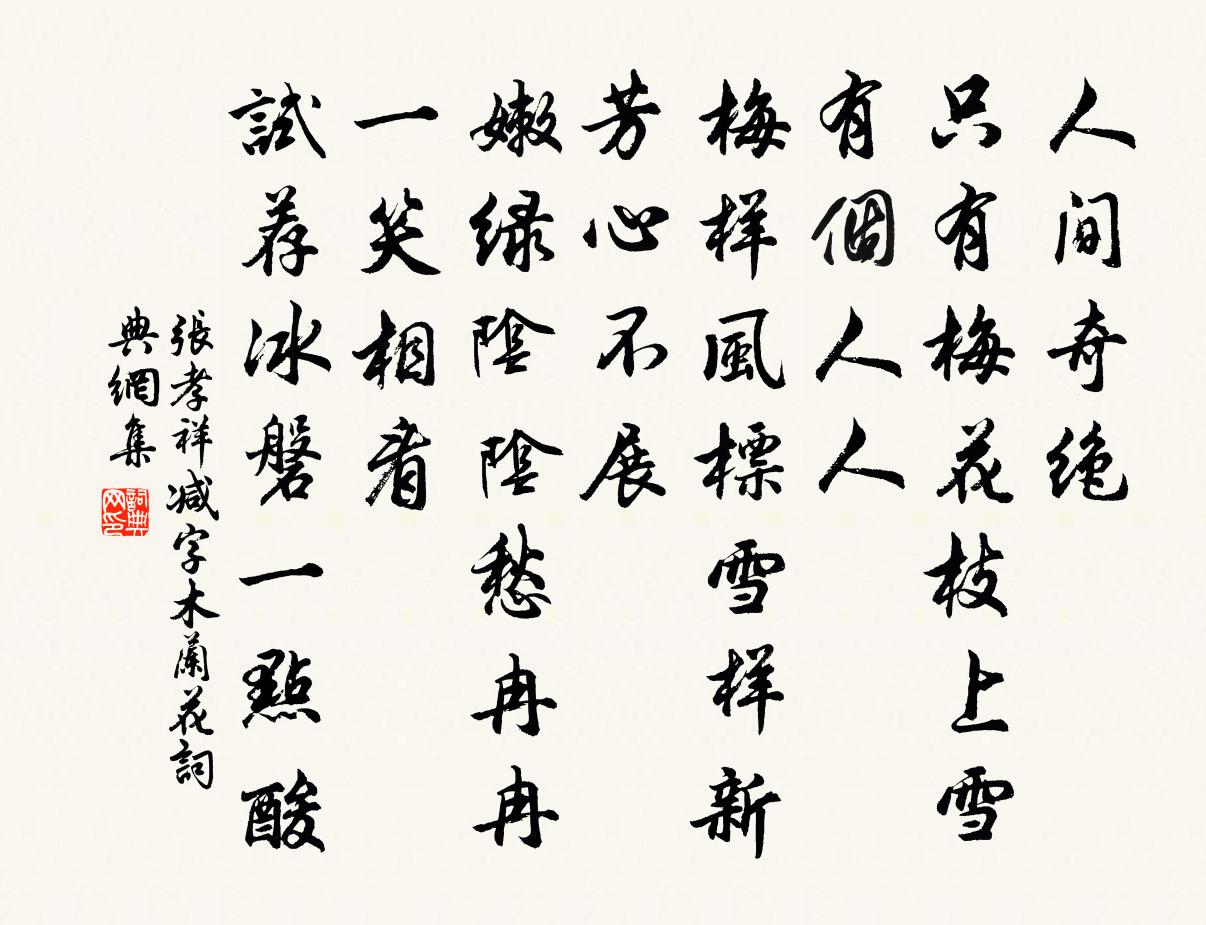 人间奇绝
只有梅花枝上雪
有個人人
梅样風標雪样新
芳心不展
嫩绿陰陰愁冉冉
一笑相看
試荐冰磐一點酸
張孝祥减字木蘭花詞
典網集
詞典网印